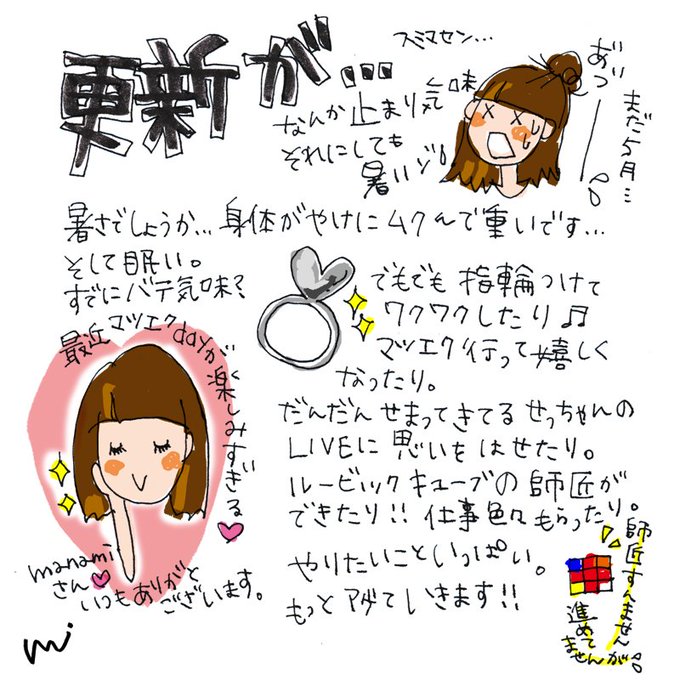 更新が…
スミマセン…
なんか止まり気味
それにしても
暑いゾ!
あづーー!!
まだ5月…
暑さでしょうか…身体がやけにムクんで重いです…
そして眠い。
すでにバテ気味?
でもでも指輪つけて
ワクワクしたり♫
マツエク行って嬉しく
なったり。
最近マツエクdayが
楽しみすぎる
manami
さん
いつもありがと
ございます。
だんだんせまってきてるせっちゃんの
LIVEに思いをはせたり。
ルービックキューブの師匠が
できたり!!仕事色々もらったり。
やりたいこといっぱい。
もっとアゲていきます!!
師匠すんません
進めて
ませんが!!
mi